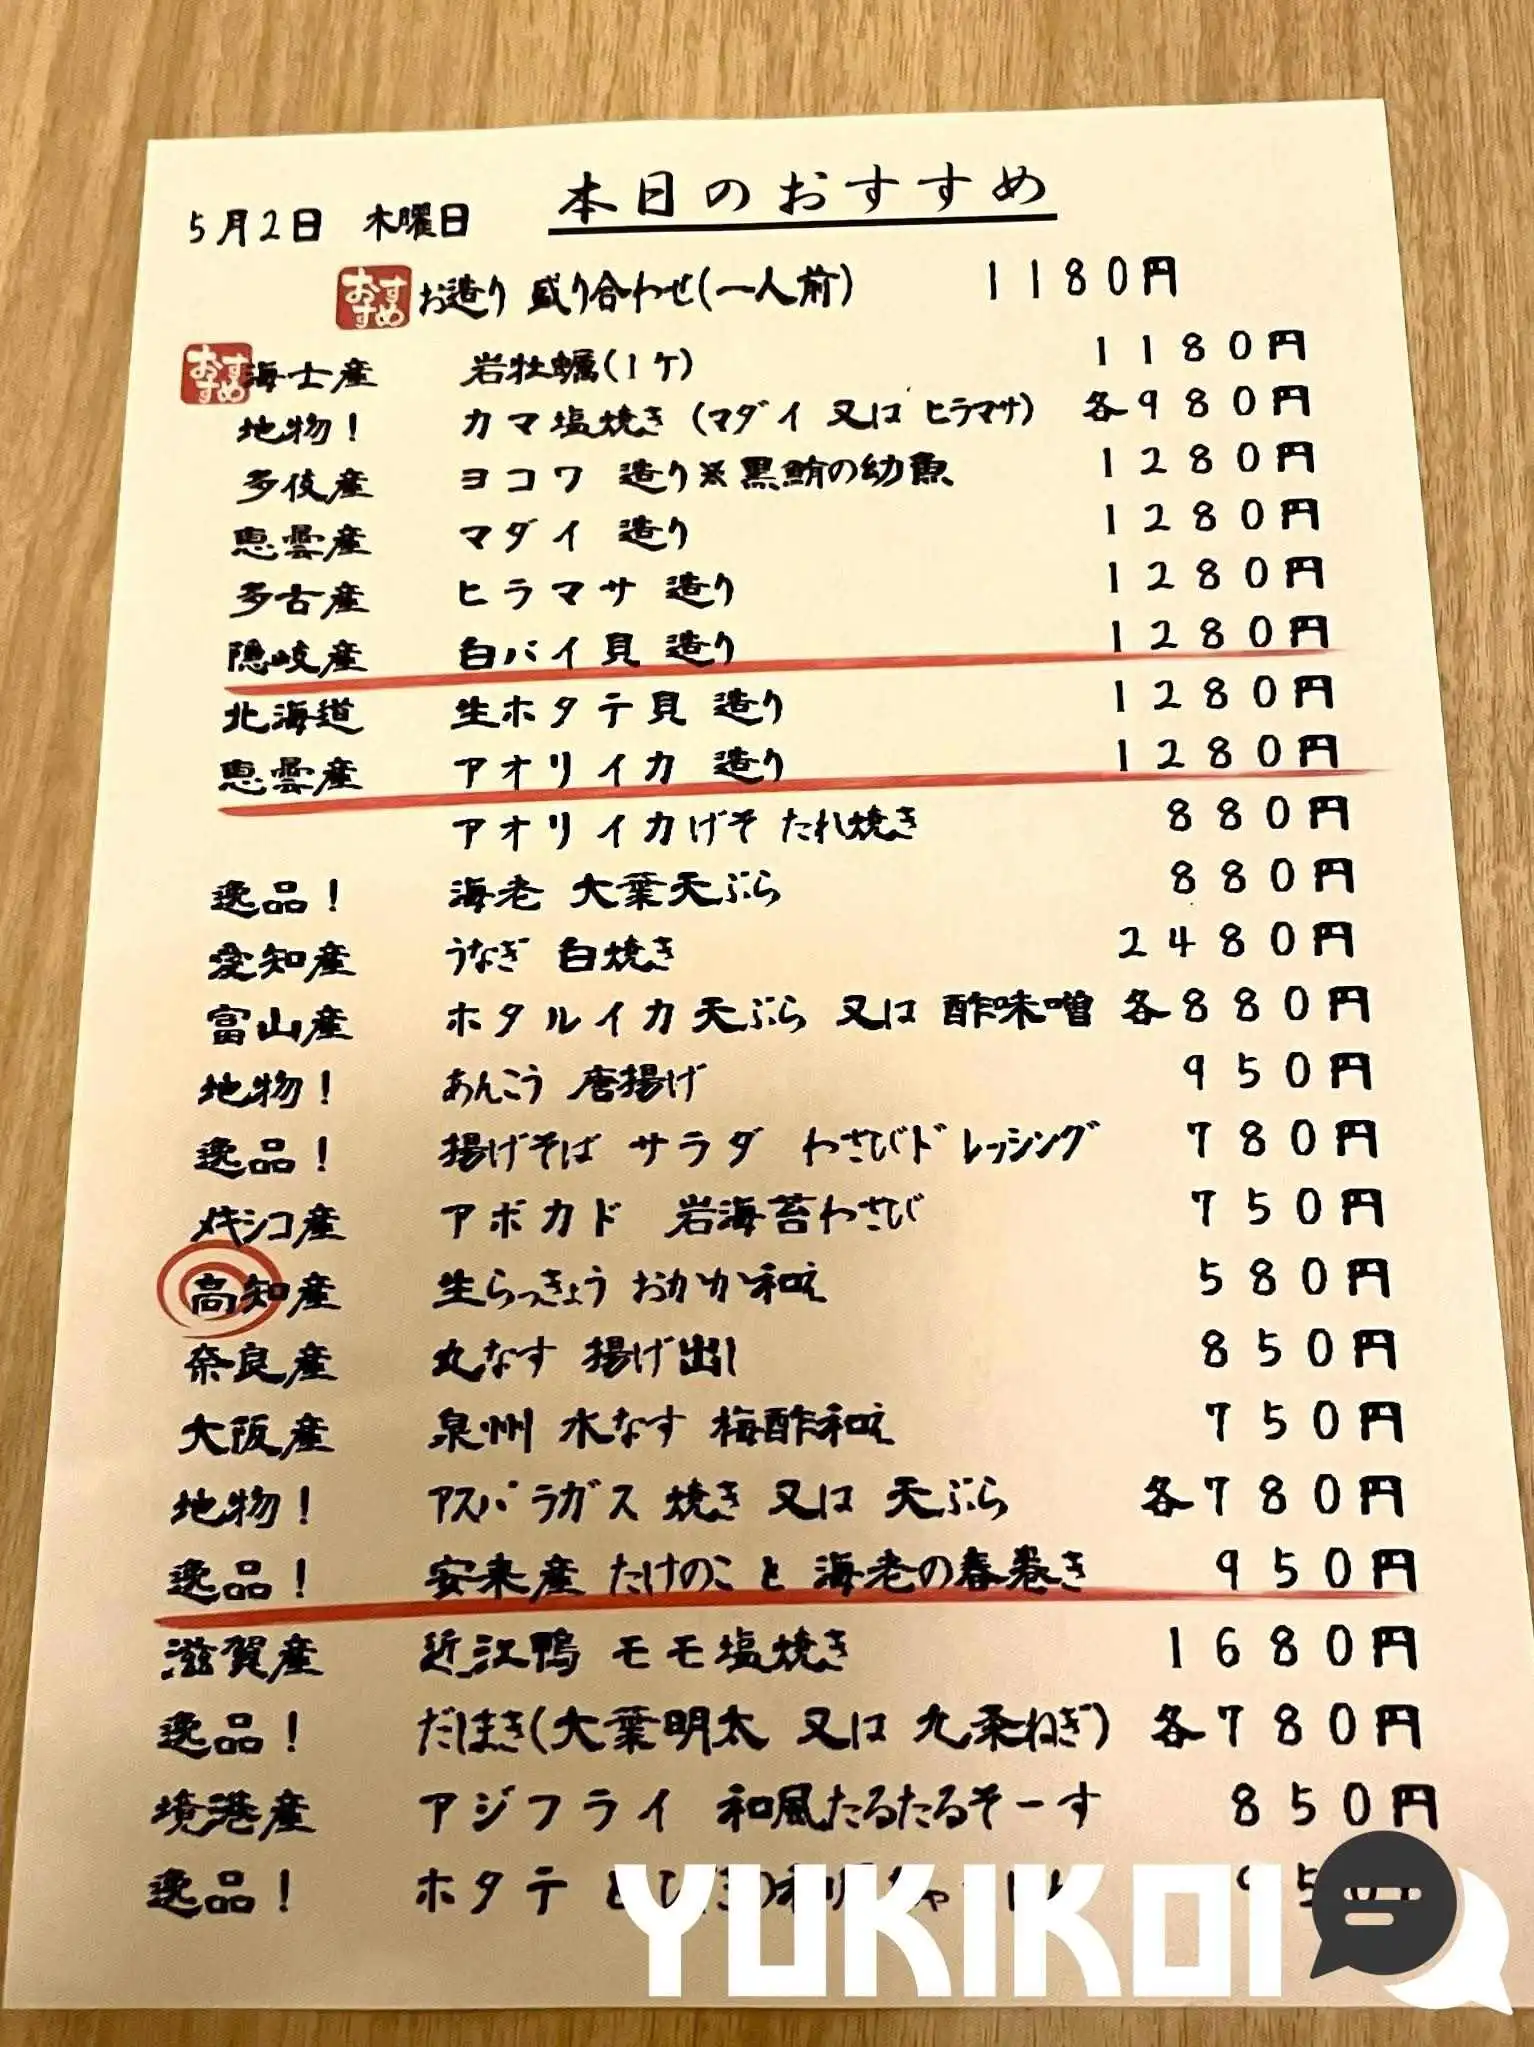 本日のおすすめ
5月2日 木曜日
おすすめ お造り 盛り合わせ(一人前) 1180円
おすすめ 海士産 岩牡蠣(1ケ) 1180円
地物! カマ塩焼き (マダイ 又は ヒラマサ) 各980円
多伎産 ヨコワ 造り※黒鮪の幼魚 1280円
恵曇産 マダイ 造り 1280円
多古産 ヒラマサ 造り 1280円
隠岐産 白バイ貝 造り 1280円
北海道 生ホタテ貝 造り 1280円
恵曇産 アオリイカ 造り 1280円
アオリイカげそ たれ焼き 880円
逸品! 海老 大葉天ぷら 880円
愛知産 うなぎ 白焼き 2480円
富山産 ホタルイカ天ぷら 又は 酢味噌 各880円
地物! あんこう 唐揚げ 950円
逸品! 揚げそば サラダ わさびドレッシング 780円
メキシコ産 アボカド 岩海苔わさび 750円
高知産 生らっきょう おかか和え 580円
奈良産 丸なす 揚げ出し 850円
大阪産 泉州 水なす 梅酢和え 750円
地物! アスパラガス 焼き 又は 天ぷら 各780円
逸品! 安来産 たけのこと 海老の春巻き 950円
滋賀産 近江鴨 モモ塩焼き 1680円
逸品! だしまき(大葉明太 又は 九条ねぎ) 各780円
境港産 アジフライ 和風たるたるそーす 850円
逸品! ホタテ
YUKIKOI